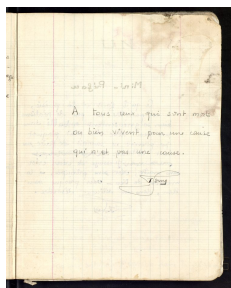 A tous ceux qui sont mort
ou bien vivent pour une cause
qui n'est pas une cause.